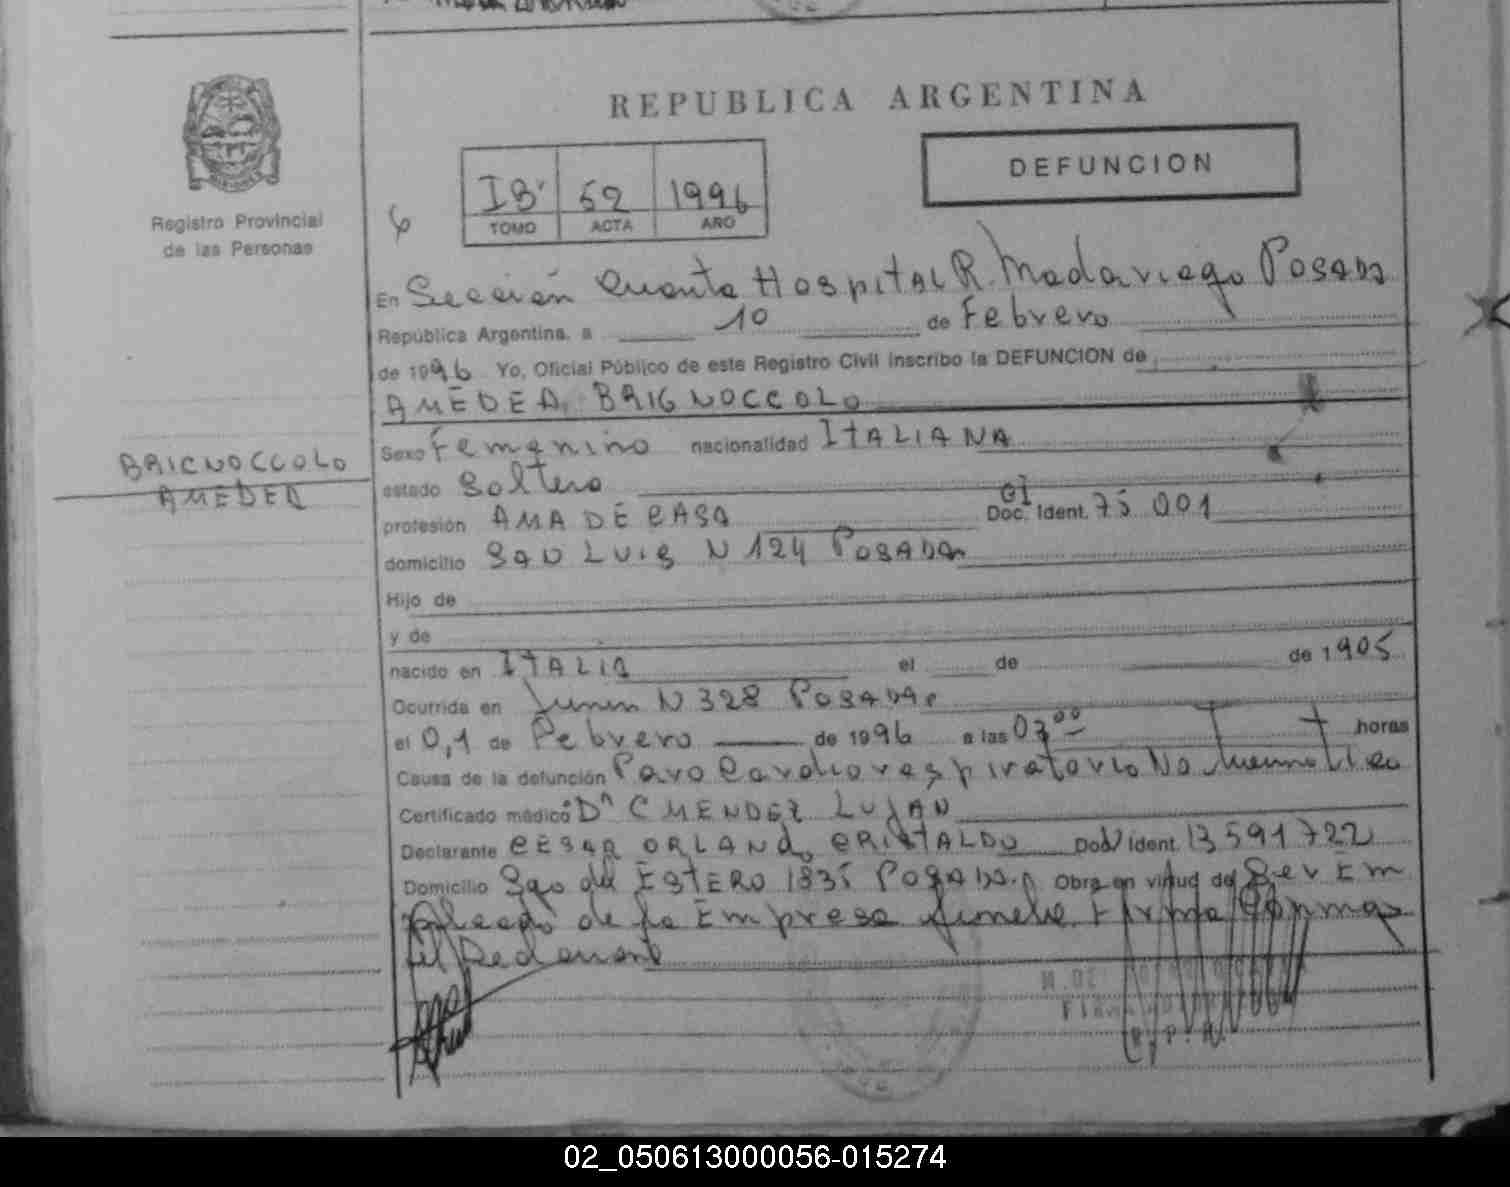 REPUBLICA ARGENTINA
DEFUNCION
IB' 52 1996
TOMO ACTA AÑO
Registro Provincial
de las Personas
En Sección Cuarta Hospital R. Madariaga Posadas
República Argentina, a 10 de Febrero
de 1996 Yo, Oficial Público de este Registro Civil inscribo la DEFUNCION de
AMEDEA BRIGNOCCOLO
Sexo Femenino nacionalidad ITALIANA
BRIGNOCCOLO
AMEDEA
estado Soltera
profesión AMA DE CASA Doc. Ident. CI 75.001
domicilio SAN LUIS N 124 POSADAS
Hijo de
y de
nacido en ITALIA el de de 1905
Ocurrida en Junin N 328 POSADAS
el 0,1 de Febrero de 1996 a las 07 00 horas
Causa de la defunción Paro Cardiorespiratorio No Traumatico
Certificado médico Dr C MENDEZ LUJAN
Declarante CESAR ORLANDO CRISTALDO Doc. Ident. 13591722
Domicilio Sgo del ESTERO 1835 POSADAS Obra en virtud de Ser Em
pleado de la Empresa Funebre Firma
el Declarante
02_050613000056-015274